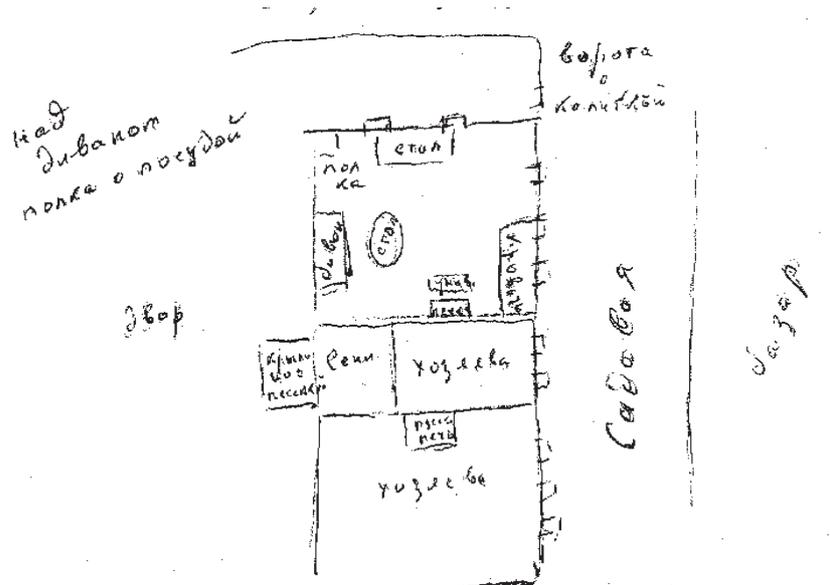 ворота
с
калиткой
над
диваном
полка с посудой
стол
пол
ка
диван
стол
печь
двор
крыль
цо с
лесенкой
Сени
хозяева
русс
печь
хозяева
Садовая
базар